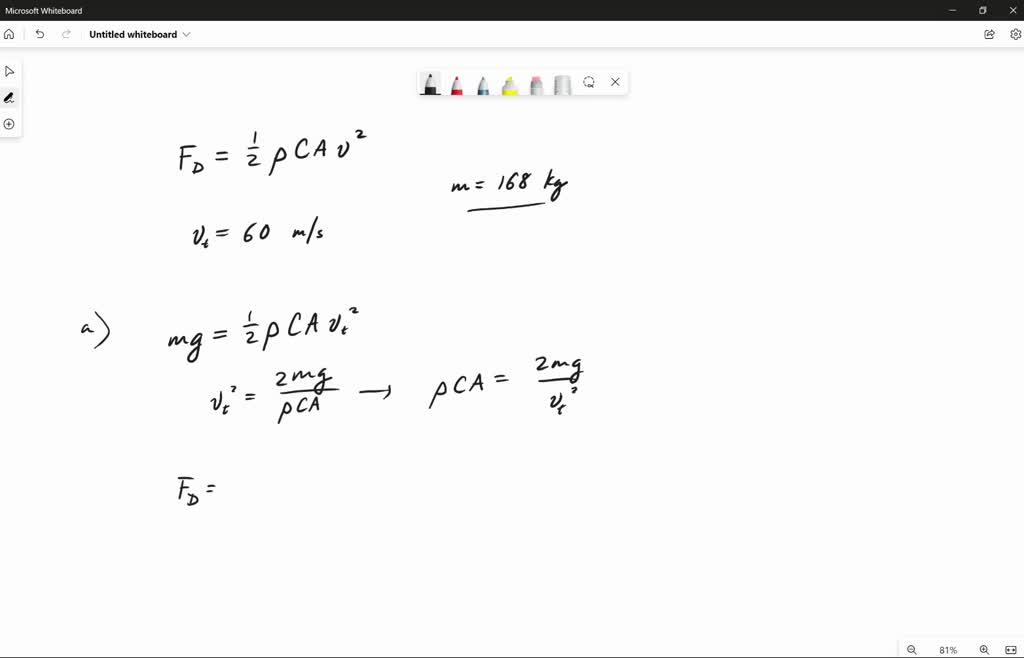 Microsoft Whiteboard
Untitled whiteboard
F_D = 1/2 ρCAv²
m = 168 kg
v_t = 60 m/s
a) mg = 1/2 ρCAv_t²
v_t² = 2mg/ρCA → ρCA = 2mg/v_t²
F_D =
81%